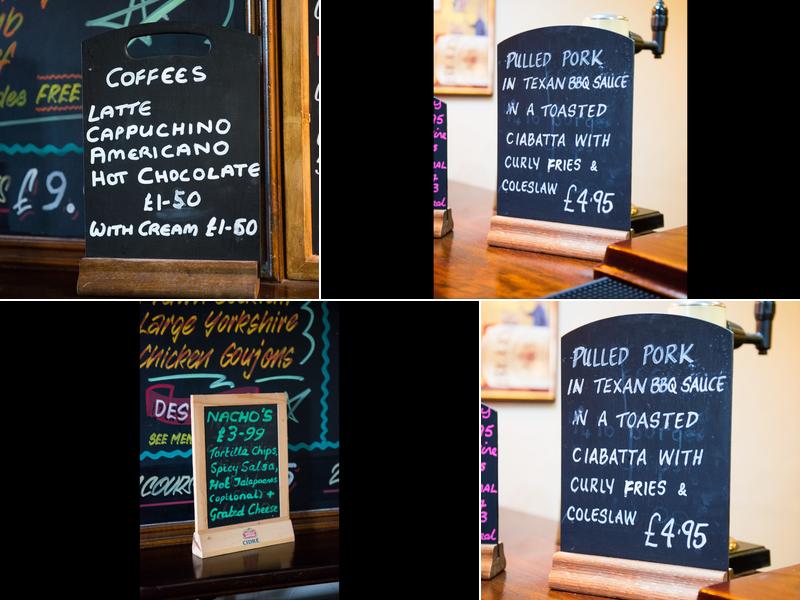 des FREE
£9.
COFFEES
LATTE
CAPPUCHINO
AMERICANO
HOT CHOCOLATE
£1-50
WITH CREAM £1-50
PULLED PORK
IN TEXAN BBQ SAUCE
IN A TOASTED
CIABATTA WITH
CURLY FRIES &
COLESLAW £4.95
Large Yorkshire
Chicken Goujons
DES
SEE MEN
COURS
NACHO'S
£3-99
Tortilla Chips,
Spicy Salsa,
Hot Jalapenos
(optional) +
Grated Cheese
CIDRE
PULLED PORK
IN TEXAN BBQ SAUCE
IN A TOASTED
CIABATTA WITH
CURLY FRIES &
COLESLAW £4.95